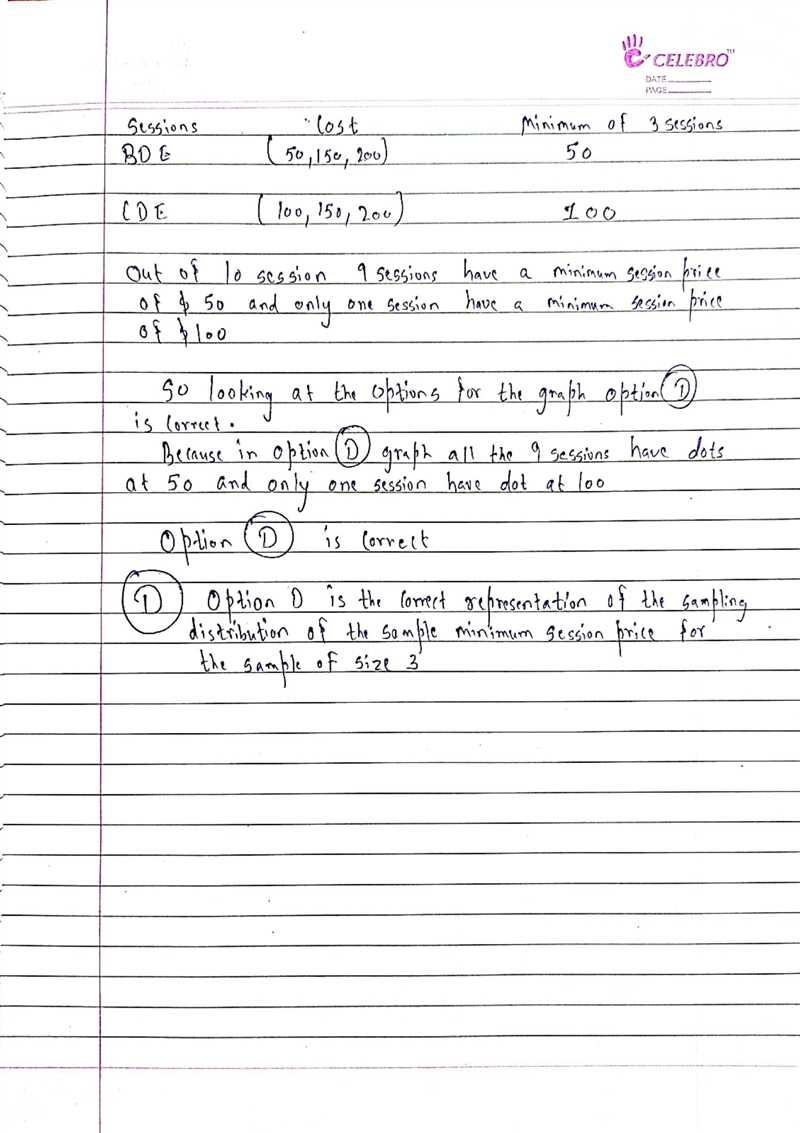 CELEBRO™
DATE
PAGE
Sessions Cost Minimum of 3 sessions
BDE (50,150,200) 50
CDE (100,150,200) 100
Out of 10 session 9 sessions have a minimum session price
of $ 50 and only one session have a minimum session price
of $100
So looking at the options for the graph option D
is correct.
Because in option D graph all the 9 sessions have dots
at 50 and only one session have dot at 100
Option D is correct
D Option D is the correct representation of the sampling
distribution of the sample minimum session price for
the sample of size 3